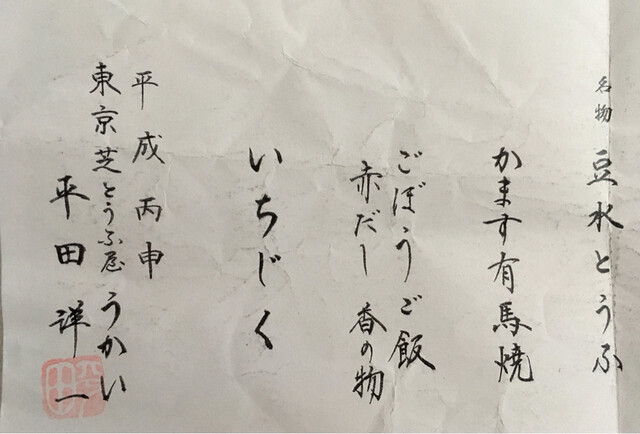 名物 豆水とうふ
かます有馬焼
ごぼうご飯
赤だし 香の物
いちじく
平成丙申
東京芝とうふ屋うかい
平田洋一